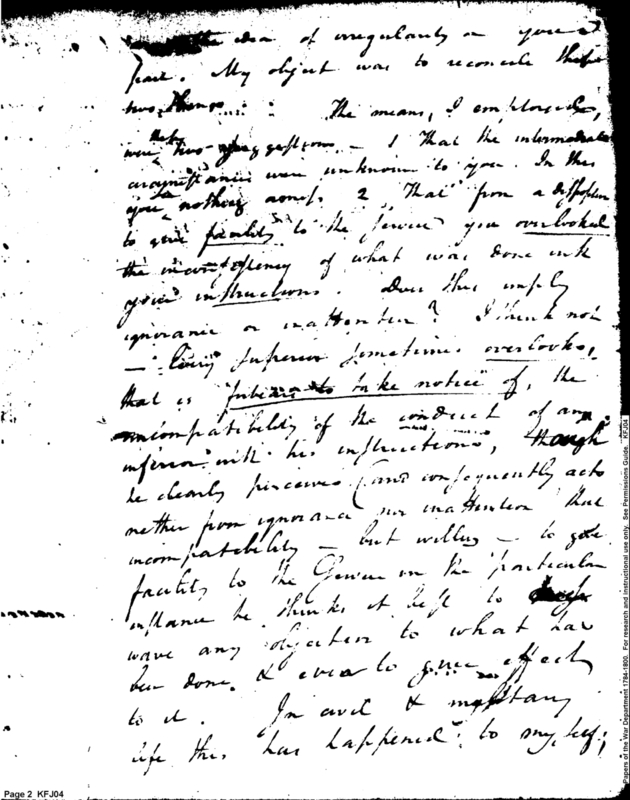 the idea of irregularity on your
part. My object was to reconcile these
two things. The means, I employed,
were these two suggestions – 1 That the intermediate
circumstances were unknown to you. In this
you nothing amiss 2 That from a disposition
to give facility to the service you overlooked
the inconsistency of what was done with
your instructions. Does this imply
ignorance or inattention? I think not
– Every superior sometimes overlooks,
that is "forbears to take notice" of, the
incompatibility of the conduct of an
inferior with his instructions, though
he clearly perceives (and consequently acts
neither from ignorance nor inattention that
incompatibility – but willing – to give
facility to the Service in the particular
instance he thinks it best to
wave any objection to what has
been done, & even to give effect
to it. In civil & military
life this has happened to myself;
Page 2 KFJ04
Papers of the War Department 1784-1800. For research and instructional use only. See Permissions Guide. KFJ04